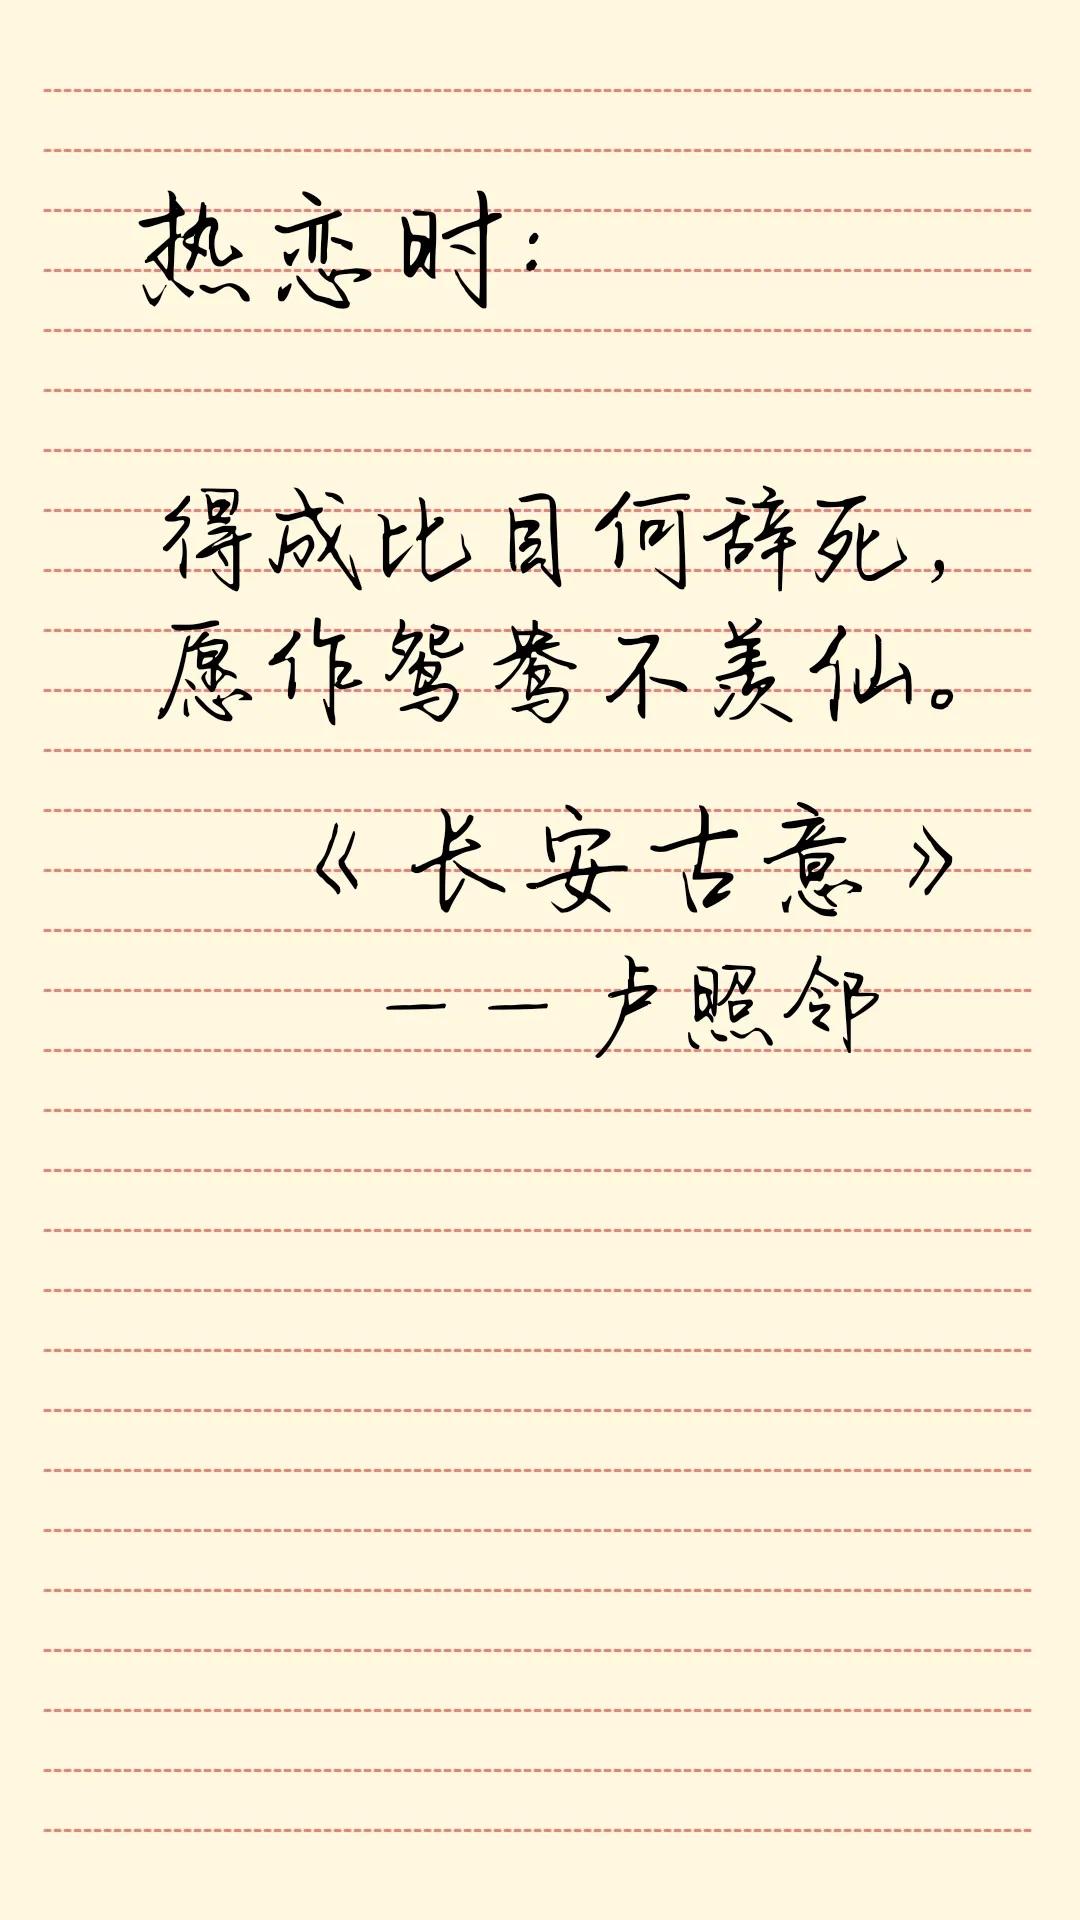 热恋时：
得成比目何辞死，
愿作鸳鸯不羡仙。
《长安古意》
——卢照邻